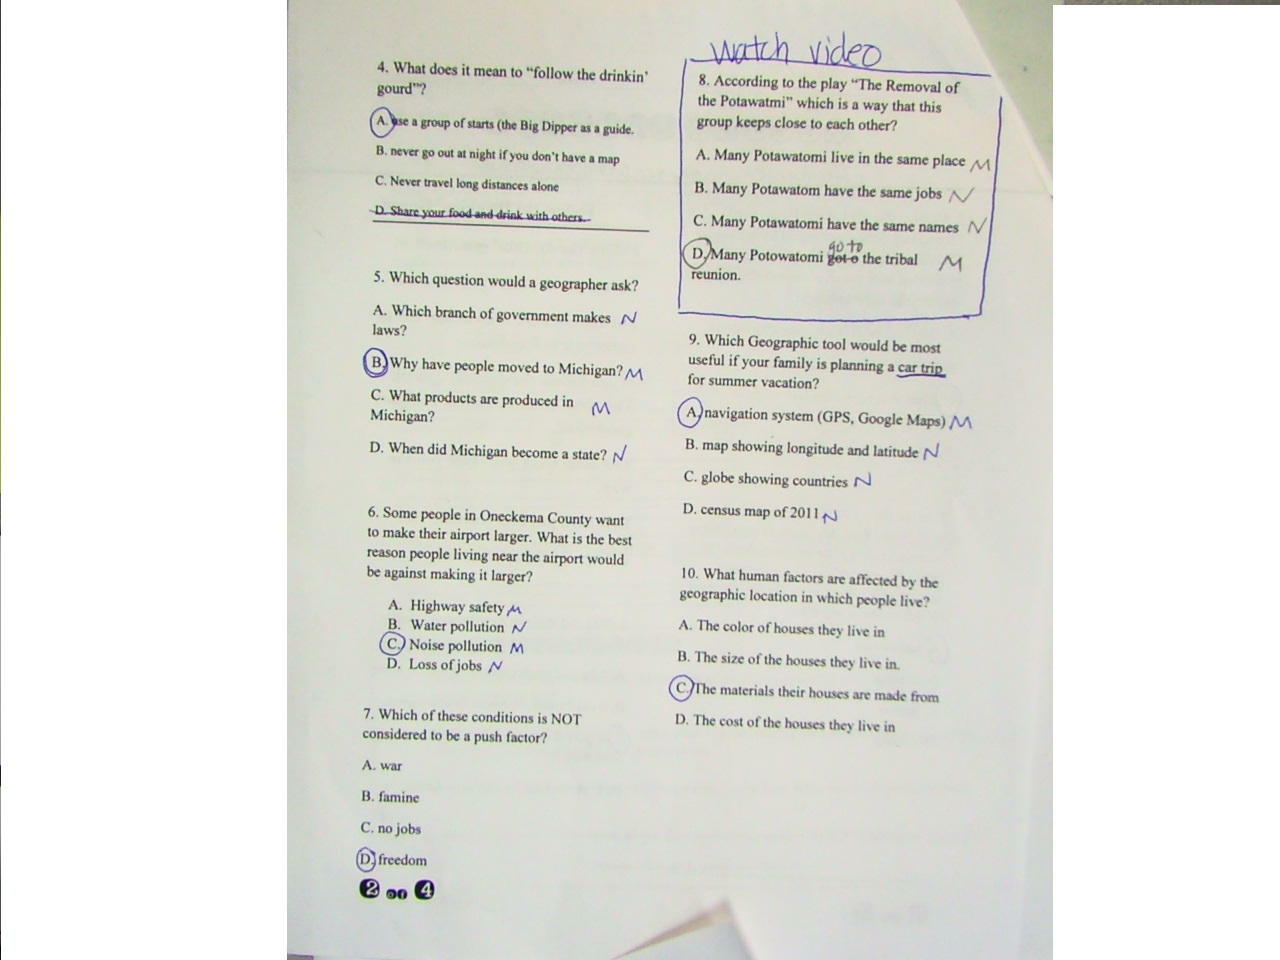 4. What does it mean to "follow the drinkin'
gourd"?
A. use a group of starts (the Big Dipper as a guide.
B. never go out at night if you don't have a map
C. Never travel long distances alone
D. Share your food and drink with others.
5. Which question would a geographer ask?
A. Which branch of government makes N
laws?
B. Why have people moved to Michigan? M
C. What products are produced in M
Michigan?
D. When did Michigan become a state? N
6. Some people in Oneckema County want
to make their airport larger. What is the best
reason people living near the airport would
be against making it larger?
A. Highway safety M
B. Water pollution N
C. Noise pollution M
D. Loss of jobs N
7. Which of these conditions is NOT
considered to be a push factor?
A. war
B. famine
C. no jobs
D. freedom
2 of 4
watch video
8. According to the play "The Removal of
the Potawatmi" which is a way that this
group keeps close to each other?
A. Many Potawatomi live in the same place M
B. Many Potawatom have the same jobs N
C. Many Potawatomi have the same names N
go to
D. Many Potowatomi got o the tribal M
reunion.
9. Which Geographic tool would be most
useful if your family is planning a car trip
for summer vacation?
A. navigation system (GPS, Google Maps) M
B. map showing longitude and latitude N
C. globe showing countries N
D. census map of 2011 N
10. What human factors are affected by the
geographic location in which people live?
A. The color of houses they live in
B. The size of the houses they live in.
C. The materials their houses are made from
D. The cost of the houses they live in